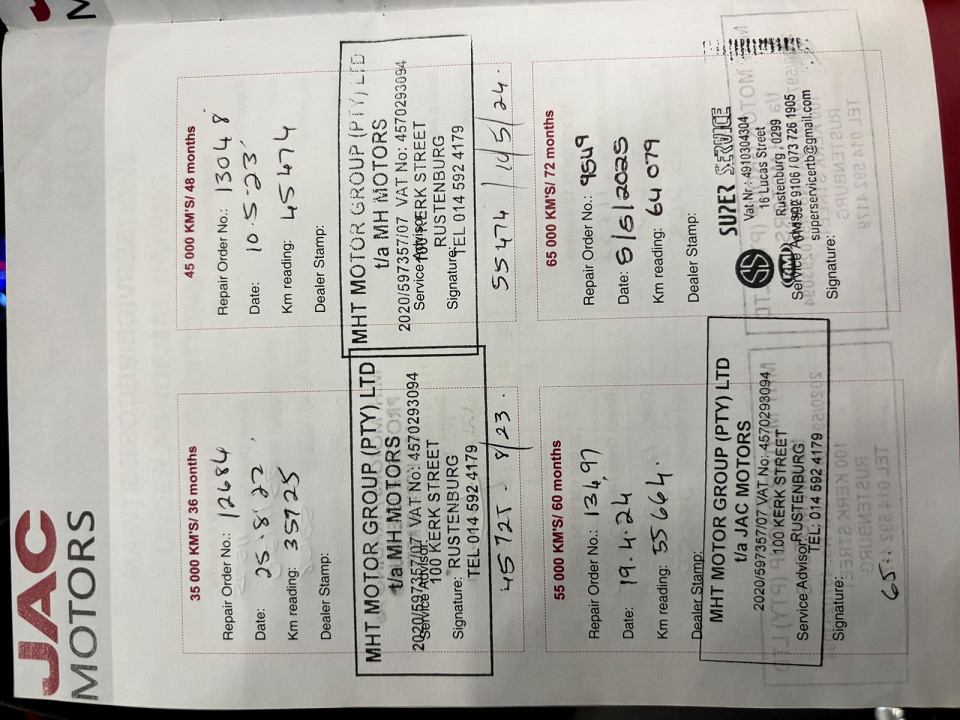 JAC
MOTORS
35 000 KM'S/ 36 months
Repair Order No.: 12684
Date: 25.8.22.
Km reading: 35725
Dealer Stamp:
MHT MOTOR GROUP (PTY) LTD
t/a MH MOTORS
2020/597357/07 VAT No: 4570293094
Service Advisor:
100 KERK STREET
Signature: RUSTENBURG
TEL 014 592 4179
45725 - 8/23.
45 000 KM'S/ 48 months
Repair Order No.: 13048
Date: 10.5.23
Km reading: 45474
Dealer Stamp:
MHT MOTOR GROUP (PTY) LTD
t/a MH MOTORS
2020/597357/07 VAT No: 4570293094
Service Advisor:
100 KERK STREET
RUSTENBURG
Signature:
TEL 014 592 4179
55474 / 10/5/24.
55 000 KM"S/ 60 months
Repair Order No.: 13497
Date: 19.4.24
Km reading: 55664.
Dealer Stamp:
MHT MOTOR GROUP (PTY) LTD
t/a JAC MOTORS
2020/597357/07 VAT No: 4570293094
100 KERK STREET
Service Advisor: RUSTENBURG
TEL: 014 592 4179
Signature:
65
65 000 KM'S/ 72 months
Repair Order No.: 9549
Date: 5/5/2025
Km reading: 64 079
Dealer Stamp:
SUPER SERVICE
Vat Nr: 4910304304
16 Lucas Street
Rustenburg, 0299
Service Advisor:
014 592 9106 / 073 726 1905
superservicertb@gmail.com
Signature: